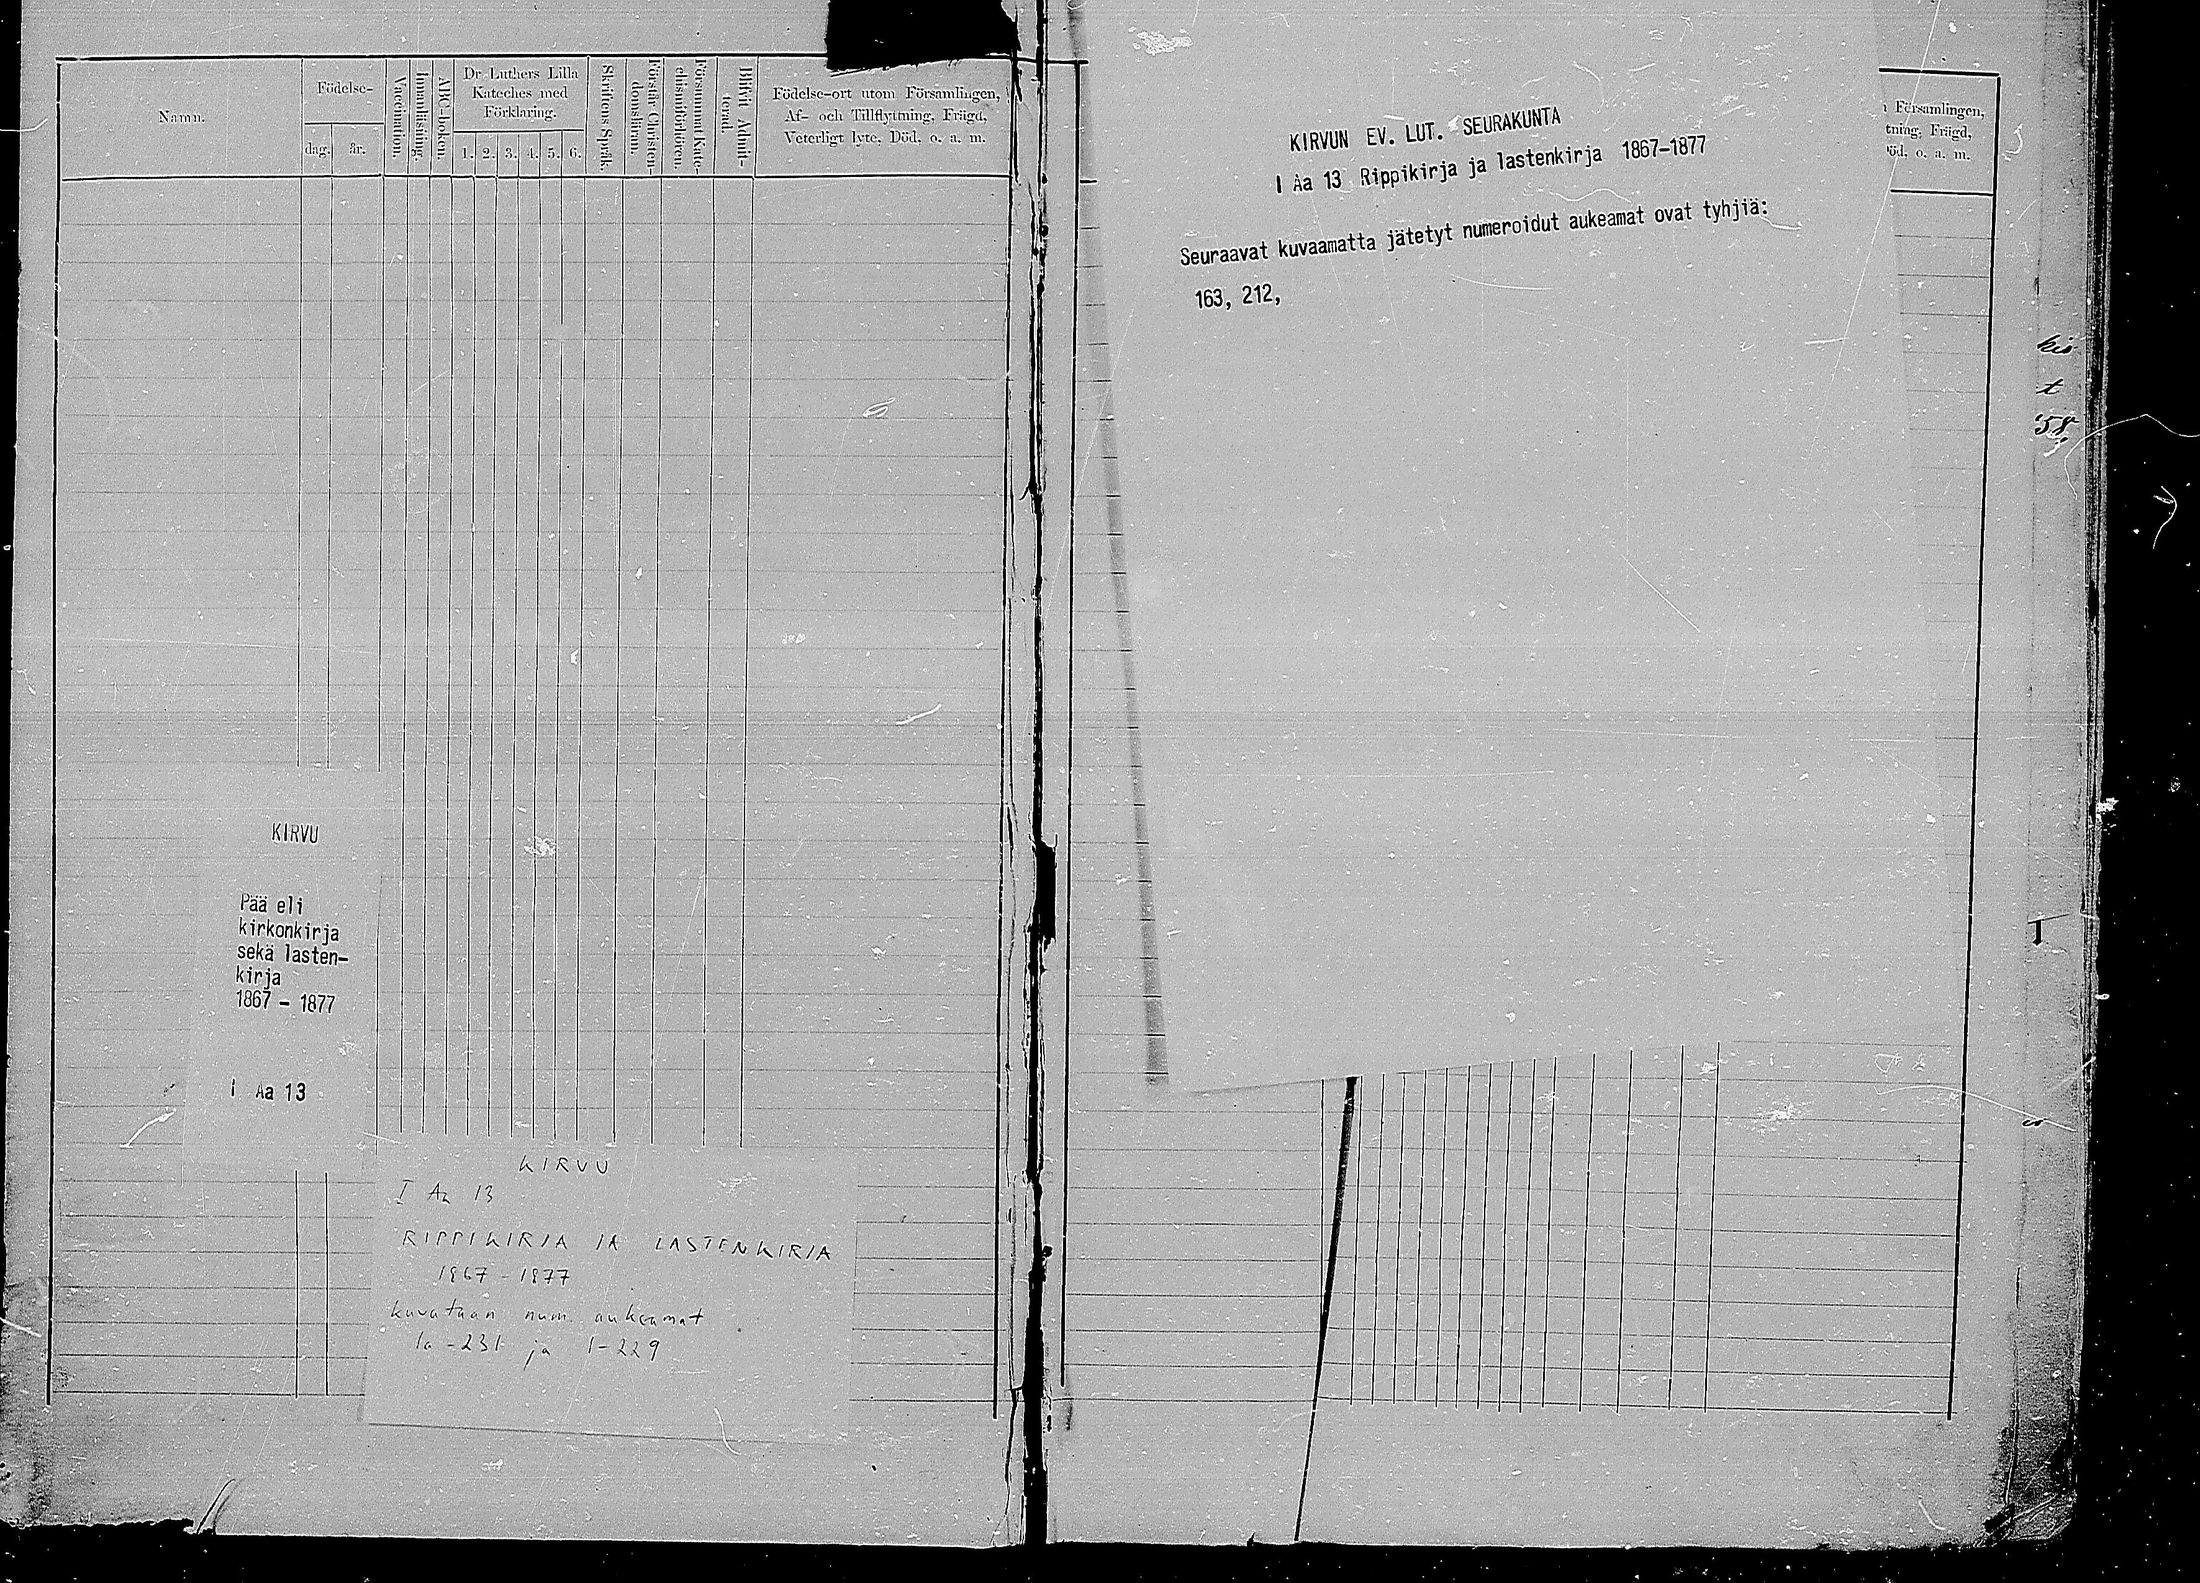 Namn.
Födelse-
dag.
år.
Vaccination.
Innanläsning.
ABC-boken.
Dr Luthers Lilla
Kateches med
Förklaring.
1. 2. 3. 4. 5. 6.
Skriftens Språk.
Förstår Christen-
domsläran.
Försummat Kate-
Blifvit Admit-
terad.
Födelse-ort utom Församlingen,
Af- och Tillflyttning, Frägd,
Veterligt lyte, Död, o. a. m.
KIRVU
Pää eli
kirkonkirja
sekä lasten-
kirja
1867 - 1877
I Aa 13
KIRVU
I Aa 13
RIPPIKIRJA JA LASTENKIRJA
1867 - 1877
kuvataan num. aukeamat
1a - 231 ja 1 - 229
KIRVUN EV. LUT. SEURAKUNTA
I Aa 13 Rippikirja ja lastenkirja 1867-1877
Seuraavat kuvaamatta jätetyt numeroidut aukeamat ovat tyhjiä:
163, 212,
Församlingen,
tning, Frägd,
öd, o. a. m.
t
58